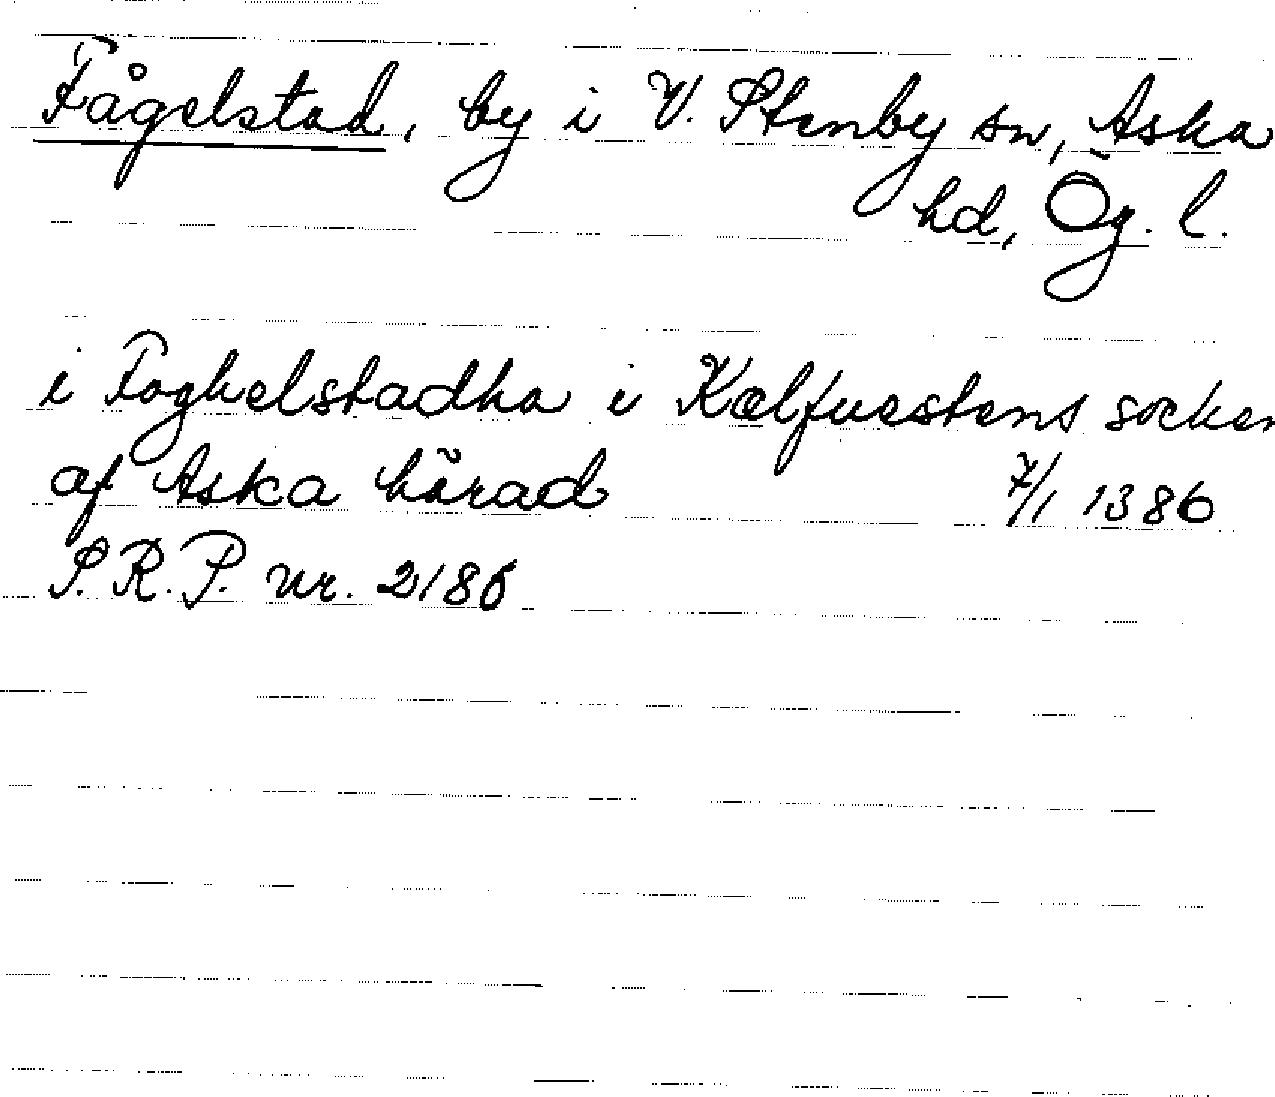 Fågelstad, by i V. Stenby sn, Aska
hd, Ög. l.
i Foghelstadha i Kælfuestens socken
af Aska härad 7/1 1386
S.R.P. nr. 2186